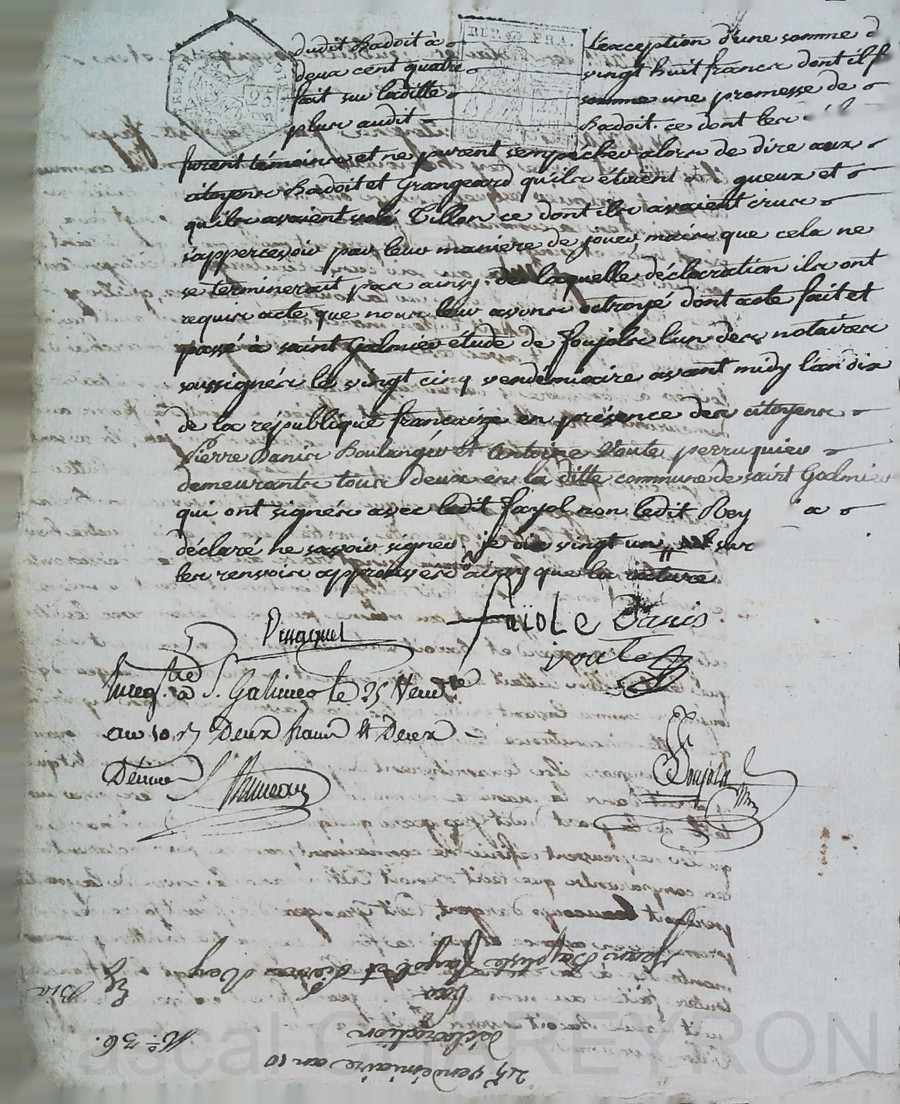 dudit Badoit à l'exception d'une somme d
deux cent quatre vingt huit francs dont il f
fait sur laditte somme une promesse de
plus audit Badoit. ce dont les
REP. FRA.
25
furent témoins et ne purent s'empêcher alors de dire aux
citoyens Badoit et Grangeard qu'ils étoient gueux et
qu'ils avaient volé Tillon ce dont ils avaient crus
s'appercevoir par leur manière de jouer mais que cela ne
se terminerait pas ainsy de laquelle déclaration ils ont
requis acte que nous leur avons octroyé dont acte fait et
passé à saint Galmier étude de Foujols l'un des notaires
soussignés le vingt cinq vendémiaire avant midy l'an dix
de la république française en présence des citoyens
Pierre Danis Boulanger et Antoine Voute perruquier
demeurants tous deux en la ditte commune de saint Galmier
qui ont signés avec ledit fayol non ledit Rey a
déclaré ne savoir signer je dis vingt un sur
les renvois approuvés ainsy que la rature
faiole Danis
voute
Enreg.tré à S.t Galmier le 25 Vend.re
au 10. Deux francs &
Décime
Foujols
Jean Baptiste Fayol et Pierre Rey
par
déclaration
25 vendémiaire an 10
N.o 36.
ascal CHAREYRON